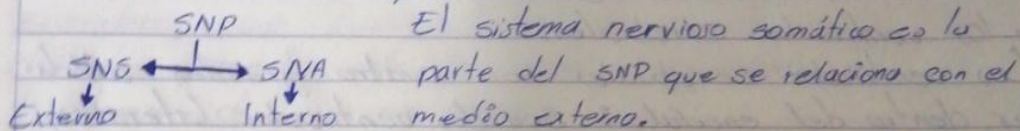 SNP
SNS SNA
Externo Interno
El sistema nervioso somático es la
parte del SNP que se relaciona con el
medio externo.